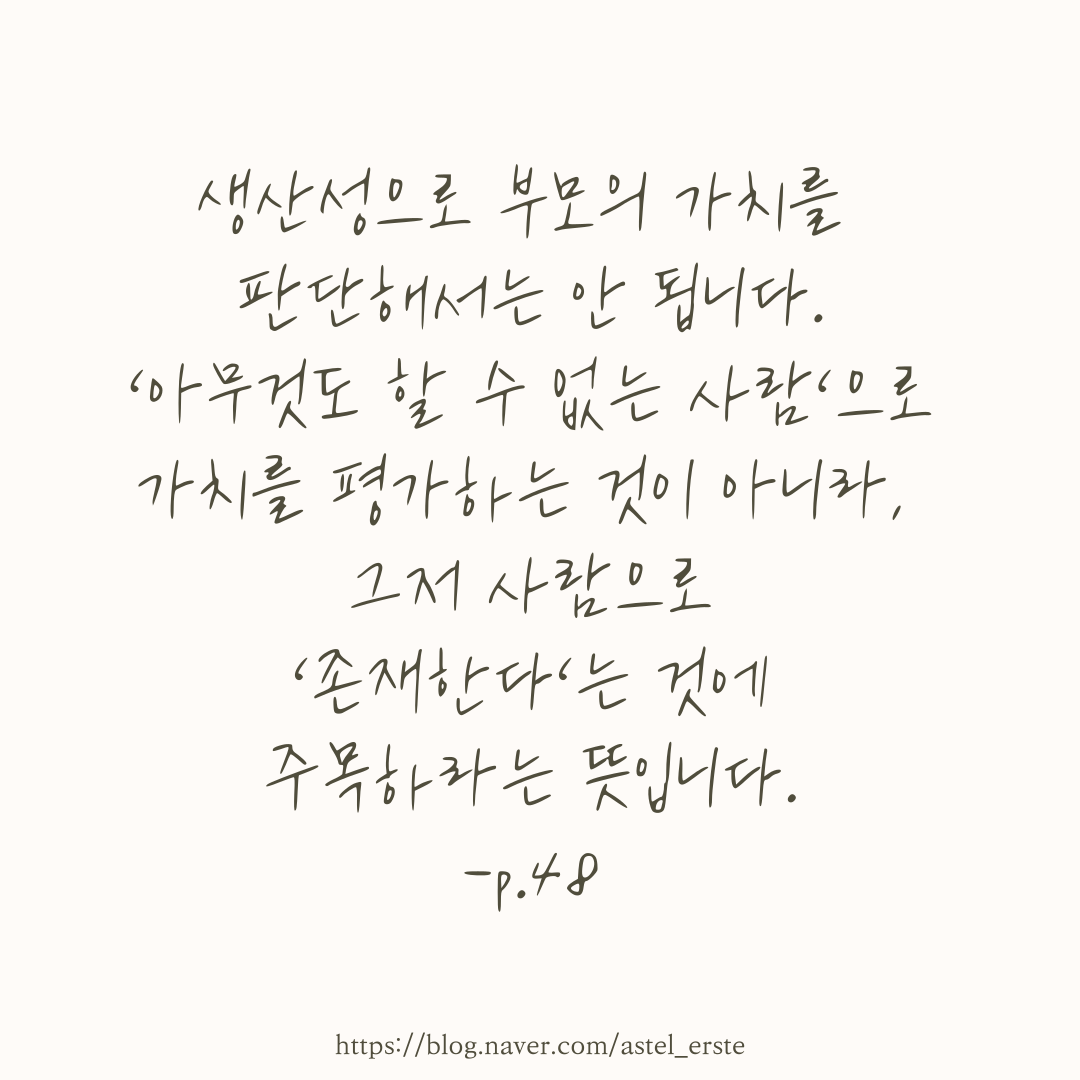 생산성으로 부모의 가치를
판단해서는 안 됩니다.
‘아무것도 할 수 없는 사람‘으로
가치를 평가하는 것이 아니라,
그저 사람으로
‘존재한다‘는 것에
주목하라는 뜻입니다.
-p.48
https://blog.naver.com/astel_erste